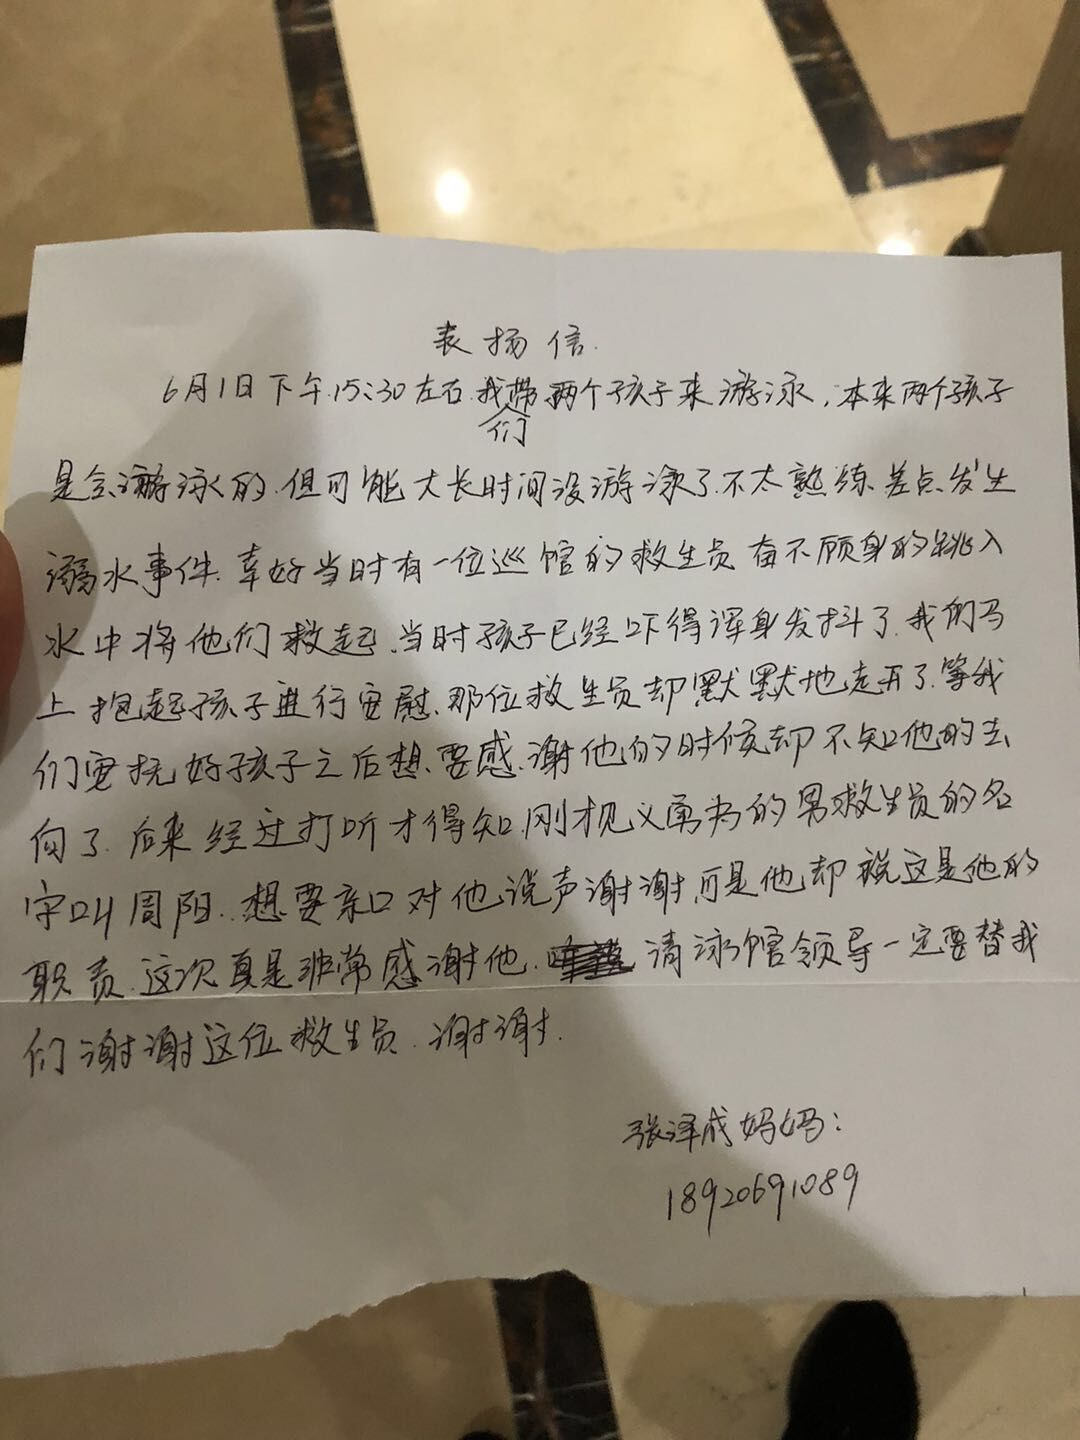 表扬信.
6月1日下午15:30左右.我们带两个孩子来游泳,本来两个孩子
是会游泳的.但可能太长时间没游泳了.不太熟练.差点发生
溺水事件.幸好当时有一位巡馆的救生员奋不顾身的跳入
水中将他们救起.当时孩子已经吓得浑身发抖了.我们马
上抱起孩子进行安慰.那位救生员却默默地走开了.等我
们安抚好孩子之后想要感谢他的时候却不知他的去
向了.后来经过打听才得知.刚才见义勇为的男救生员的名
字叫周阳..想要亲口对他说声谢谢.可是他却说这是他的
职责.这次真是非常感谢他.请泳馆领导一定要替我
们谢谢这位救生员.谢谢.
张泽成妈妈:
18920691089